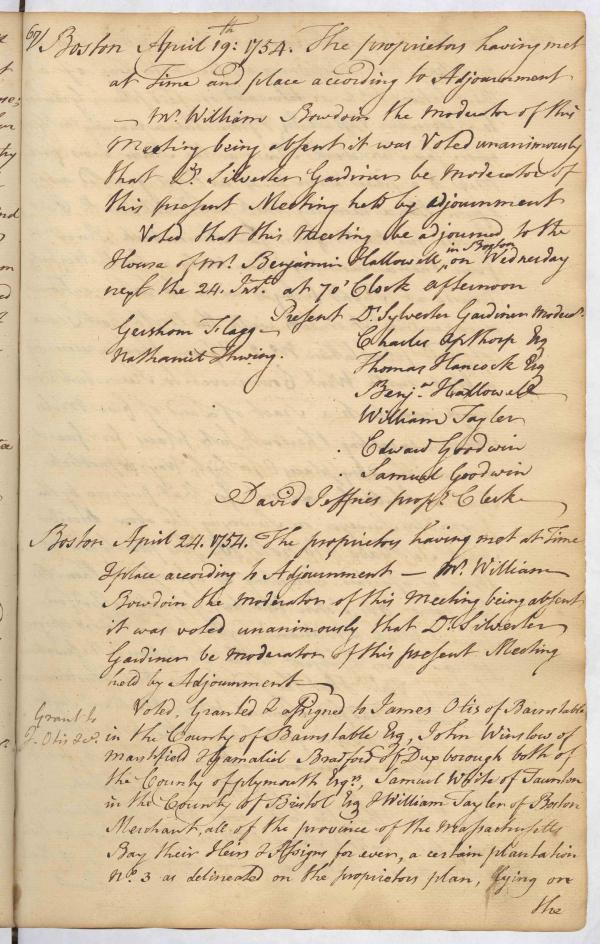 67/ Boston April 19th: 1754. The proprietors having met
at Time and place according to Adjournment
— Mr. William Bowdoin the moderator of this
Meeting being absent it was Voted unanimously
that Dr. Silvester Gardiner be moderator of
this present Meeting held by adjournment
Voted that this meeting be adjourned to the
House of Mr. Benjamin Hallowell, in Boston on Wednesday
next the 24. Inst. at 7 o'Clock afternoon
Present Dr. Sylvester Gardiner Moder.
Gershom Flagg Charles Apthorp Esq
Nathaniel Thwing. Thomas Hancock Esq
Benj.a Hallowell
William Tayler
Edward Goodwin
Samuel Goodwin
David Jeffries prop.rs Clerk
Boston April 24. 1754. The proprietors having met at Time
& place according to Adjournment — Mr. William
Bowdoin the moderator of this Meeting being absent
it was voted unanimously that Dr. Silvester
Gardiner be moderator of this present Meeting
held by Adjournment
Grant to
J. Otis &c.
Voted, Granted & assigned to James Otis of Barnstable
in the County of Barnstable Esq, John Winslow of
Marshfield & Gamaliel Bradford of Duxborough both of
the County of plymouth Esqrs, Samuel White of Taunton
in the County of Bristol Esq & William Tayler of Boston
Merchant, all of the province of the Massachusetts
Bay their Heirs & Assigns for ever, a certain plantation
No. 3 as delineated on the proprietors plan, lying on
the